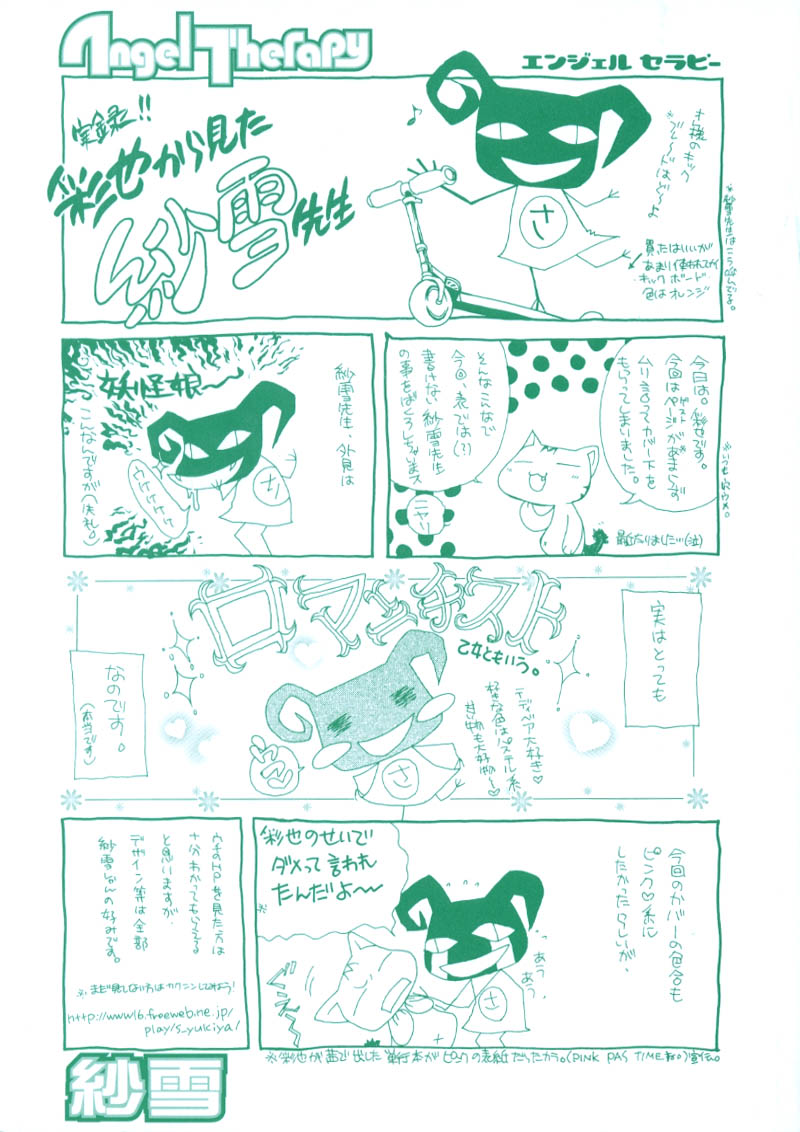 Angel Therapy
エンジェル セラピー
実録!!
彩也から見た
紗雪先生
さ
買ったはいいが
あまり使われてない
キックボード
色はオレンジ
※紗雪先生はこうなんでる。
今日は。彩也です。
今回はページがあまらず
ムリ言ってカバー下を
もらってしまいました。
そんなこんなで
今回、表では(?)
書けない紗雪先生
の事をばくろしちゃいまス
ニヤリ
紗雪先生、外見は
妖怪娘〜
ウケケケケケ
さ
こんなんですが(失礼)
実はとっても
ロマンチスト
乙女ともいう。
テディベア大好き♡
好きな色はパステル系
甘い物も大好物〜♡
さ
なのです。
(本当です)
今回のカバーの色合も
ピンク♡系に
したかったらしいが、
あうぅ
あうぅ
さ
彩也のせいで
ダメって言われ
たんだよ〜
※
ウチのHPを見た方は
十分わかってもらえてる
と思いますが、
デザイン等は全部
紗雪しゃんの好みです。
※まだ見てない方はカクニンしてみよう!
http://www16.freeweb.ne.jp/
play/s_yukiya/
※彩也が茜で出した単行本がピンクの表紙だったカラ。(PINK PAS TIME
紗雪